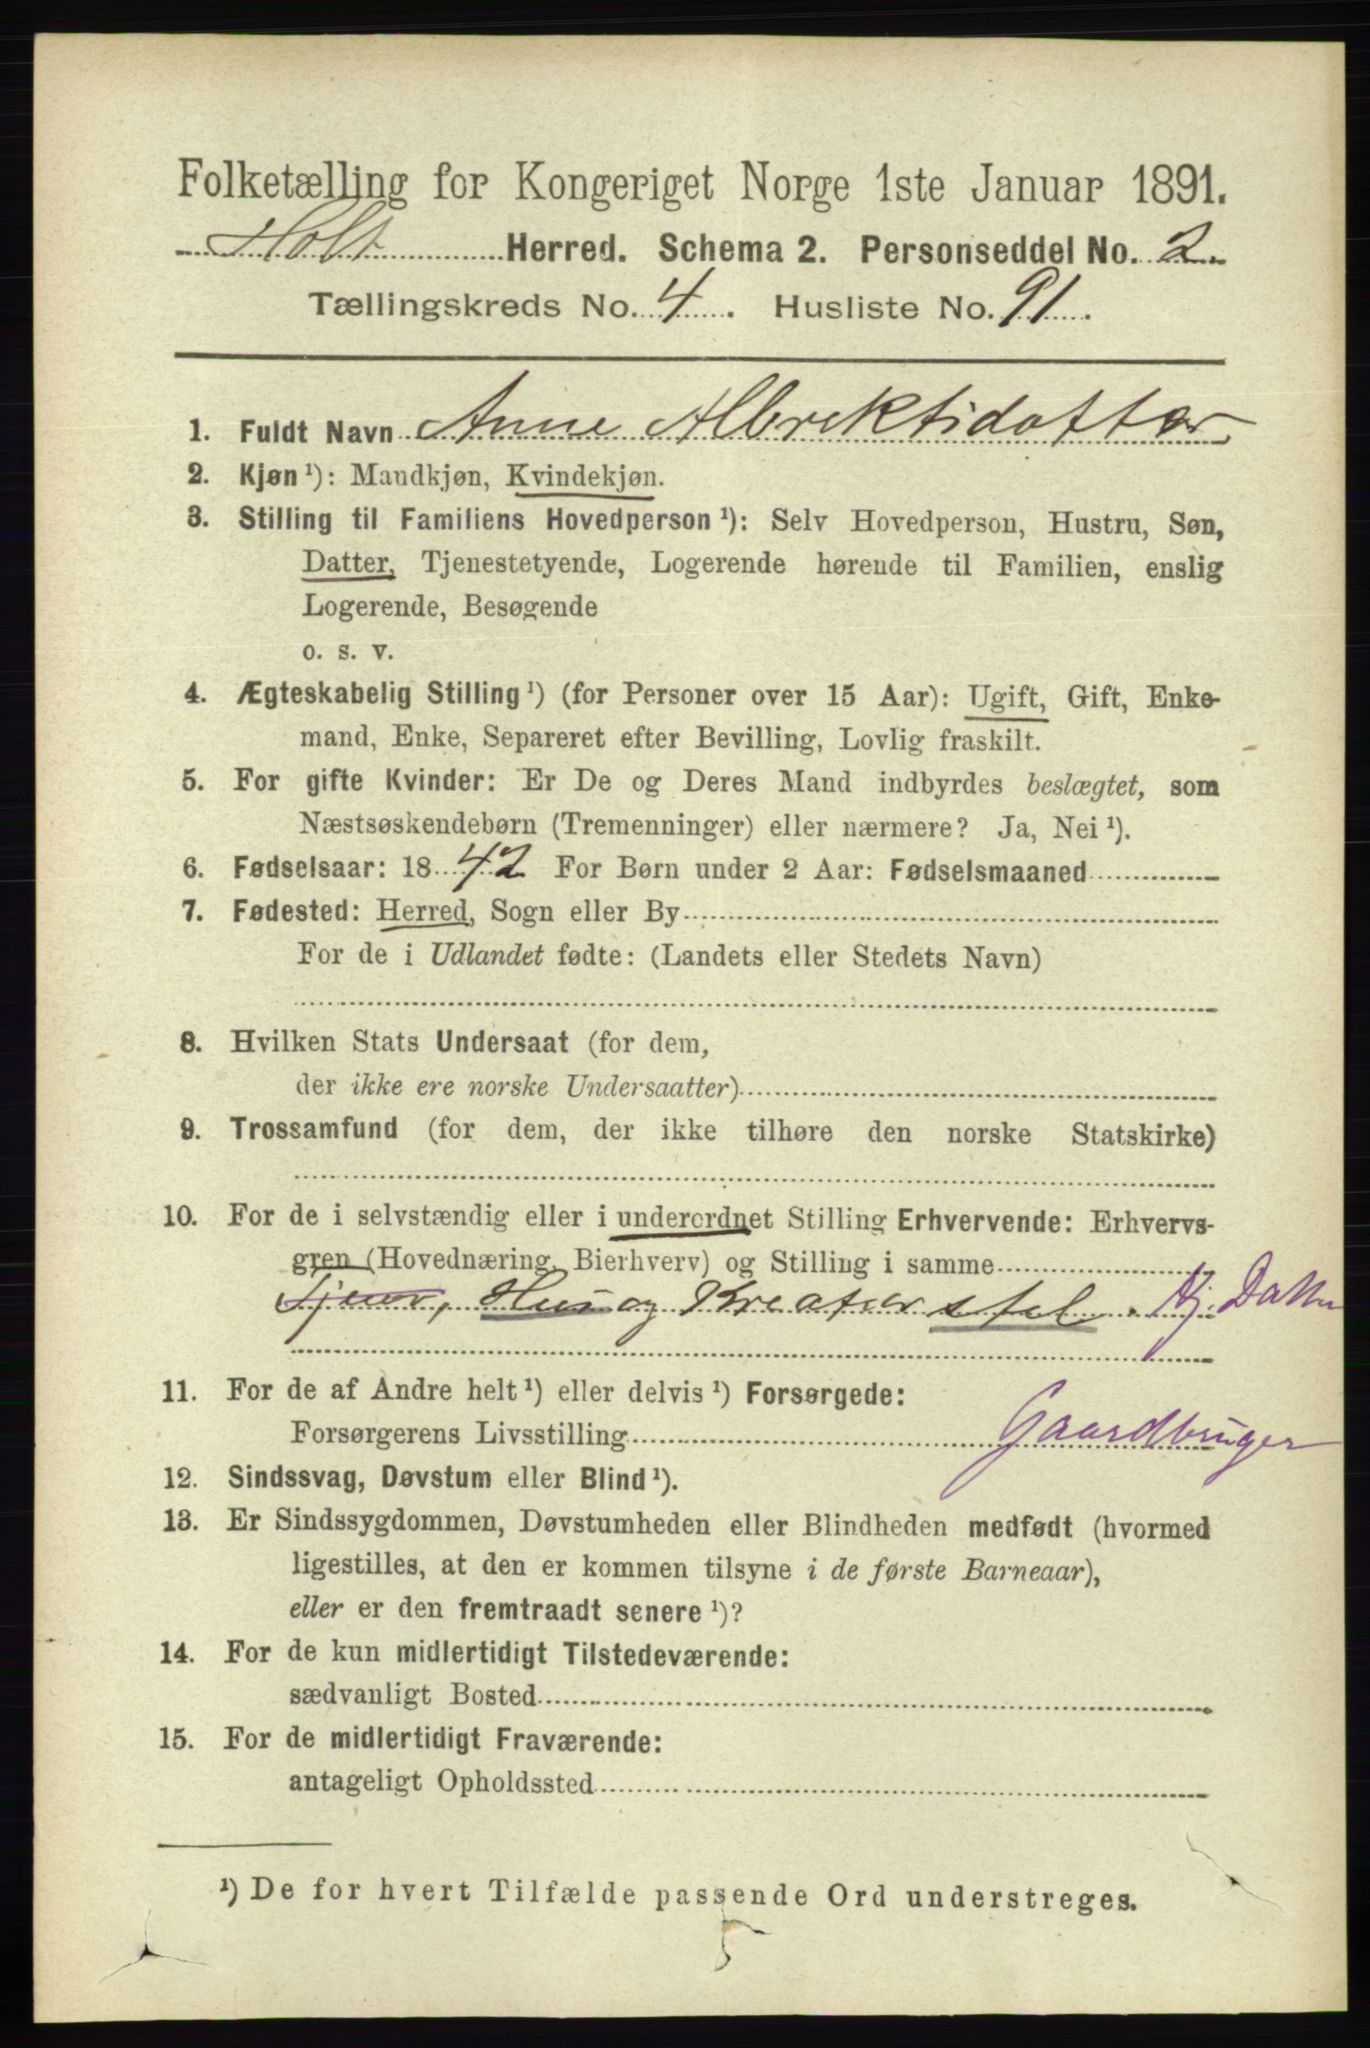 Folketælling for Kongeriget Norge 1ste Januar 1891.
Holt Herred. Schema 2. Personseddel No. 2.
Tællingskreds No. 4. Husliste No. 91.
1. Fuldt Navn Anne Albrektsdatter
2. Kjøn ¹): Mandkjøn, Kvindekjøn.
3. Stilling til Familiens Hovedperson ¹): Selv Hovedperson, Hustru, Søn,
Datter, Tjenestetyende, Logerende hørende til Familien, enslig
Logerende, Besøgende
o. s. v.
4. Ægteskabelig Stilling ¹) (for Personer over 15 Aar): Ugift, Gift, Enke-
mand, Enke, Separeret efter Bevilling, Lovlig fraskilt.
5. For gifte Kvinder: Er De og Deres Mand indbyrdes beslægtet, som
Næstsøskendebørn (Tremenninger) eller nærmere? Ja, Nei ¹).
6. Fødselsaar: 1842 For Børn under 2 Aar: Fødselsmaaned
7. Fødested: Herred, Sogn eller By
For de i Udlandet fødte: (Landets eller Stedets Navn)
8. Hvilken Stats Undersaat (for dem,
der ikke ere norske Undersaatter)
9. Trossamfund (for dem, der ikke tilhøre den norske Statskirke)
10. For de i selvstændig eller i underordnet Stilling Erhvervende: Erhvervs-
gren (Hovednæring, Bierhverv) og Stilling i samme
Tjener, Hus og Kreaturstel. Hj. Datter
11. For de af Andre helt ¹) eller delvis ¹) Forsørgede:
Forsørgerens Livsstilling Gaardbruger
12. Sindssvag, Døvstum eller Blind ¹).
13. Er Sindssygdommen, Døvstumheden eller Blindheden medfødt (hvormed
ligestilles, at den er kommen tilsyne i de første Barneaar),
eller er den fremtraadt senere ¹)?
14. For de kun midlertidigt Tilstedeværende:
sædvanligt Bosted
15. For de midlertidigt Fraværende:
antageligt Opholdssted
¹) De for hvert Tilfælde passende Ord understreges.
5